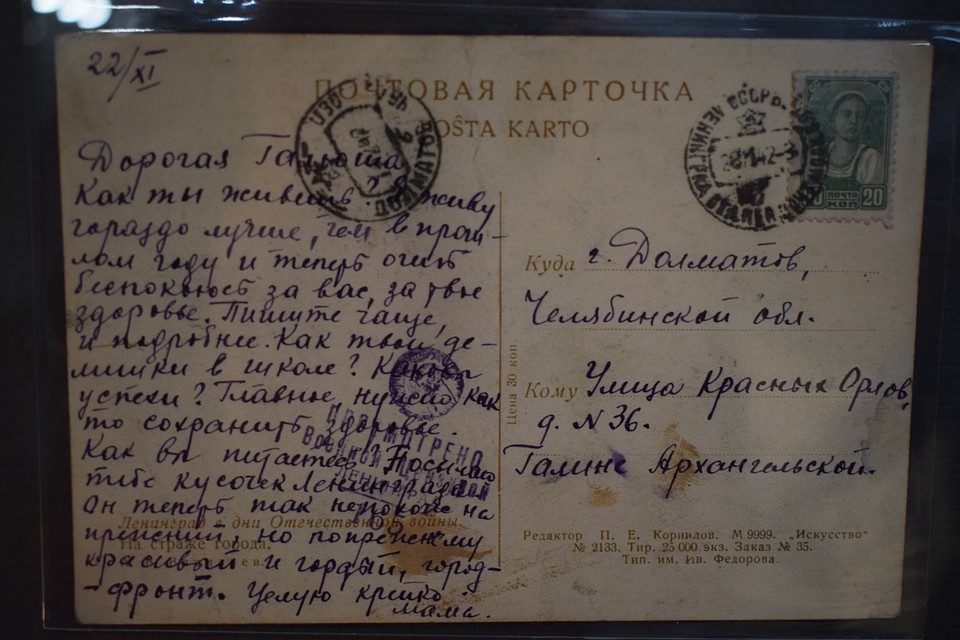 22/XI
ПОЧТОВАЯ КАРТОЧКА
POŜTA KARTO
Дорогая Галюша
Как ты живешь? Я живу
гораздо лучше, чем в прош-
лом году и теперь очень
беспокоюсь за вас, за твое
здоровье. Пишите чаще,
и подробнее. Как твои де-
лишки в школе? Каковы
успехи? Главное, нужно как
то сохранить здоровье.
Как вы питаетесь? Посылаю
тебе кусочек Ленинграда.
Он теперь так непохож на
прежний, но попрежнему
красивый и гордый, город-
-фронт. Целую крепко.
мама.
ПРОСМОТРЕНО
Ленинград в дни Отечественной войны.
На страже города.
ПОЧТА
20
КОП
Куда г. Далматов,
Челябинской обл.
Цена 30 коп
Кому Улица Красных Орлов,
д. N 36.
Галине Архангельской.
Редактор П. Е. Корнилов. М 9999. „Искусство"
№ 2133. Тир. 25 000 экз. Заказ № 35.
Тип. им. Ив. Федорова.